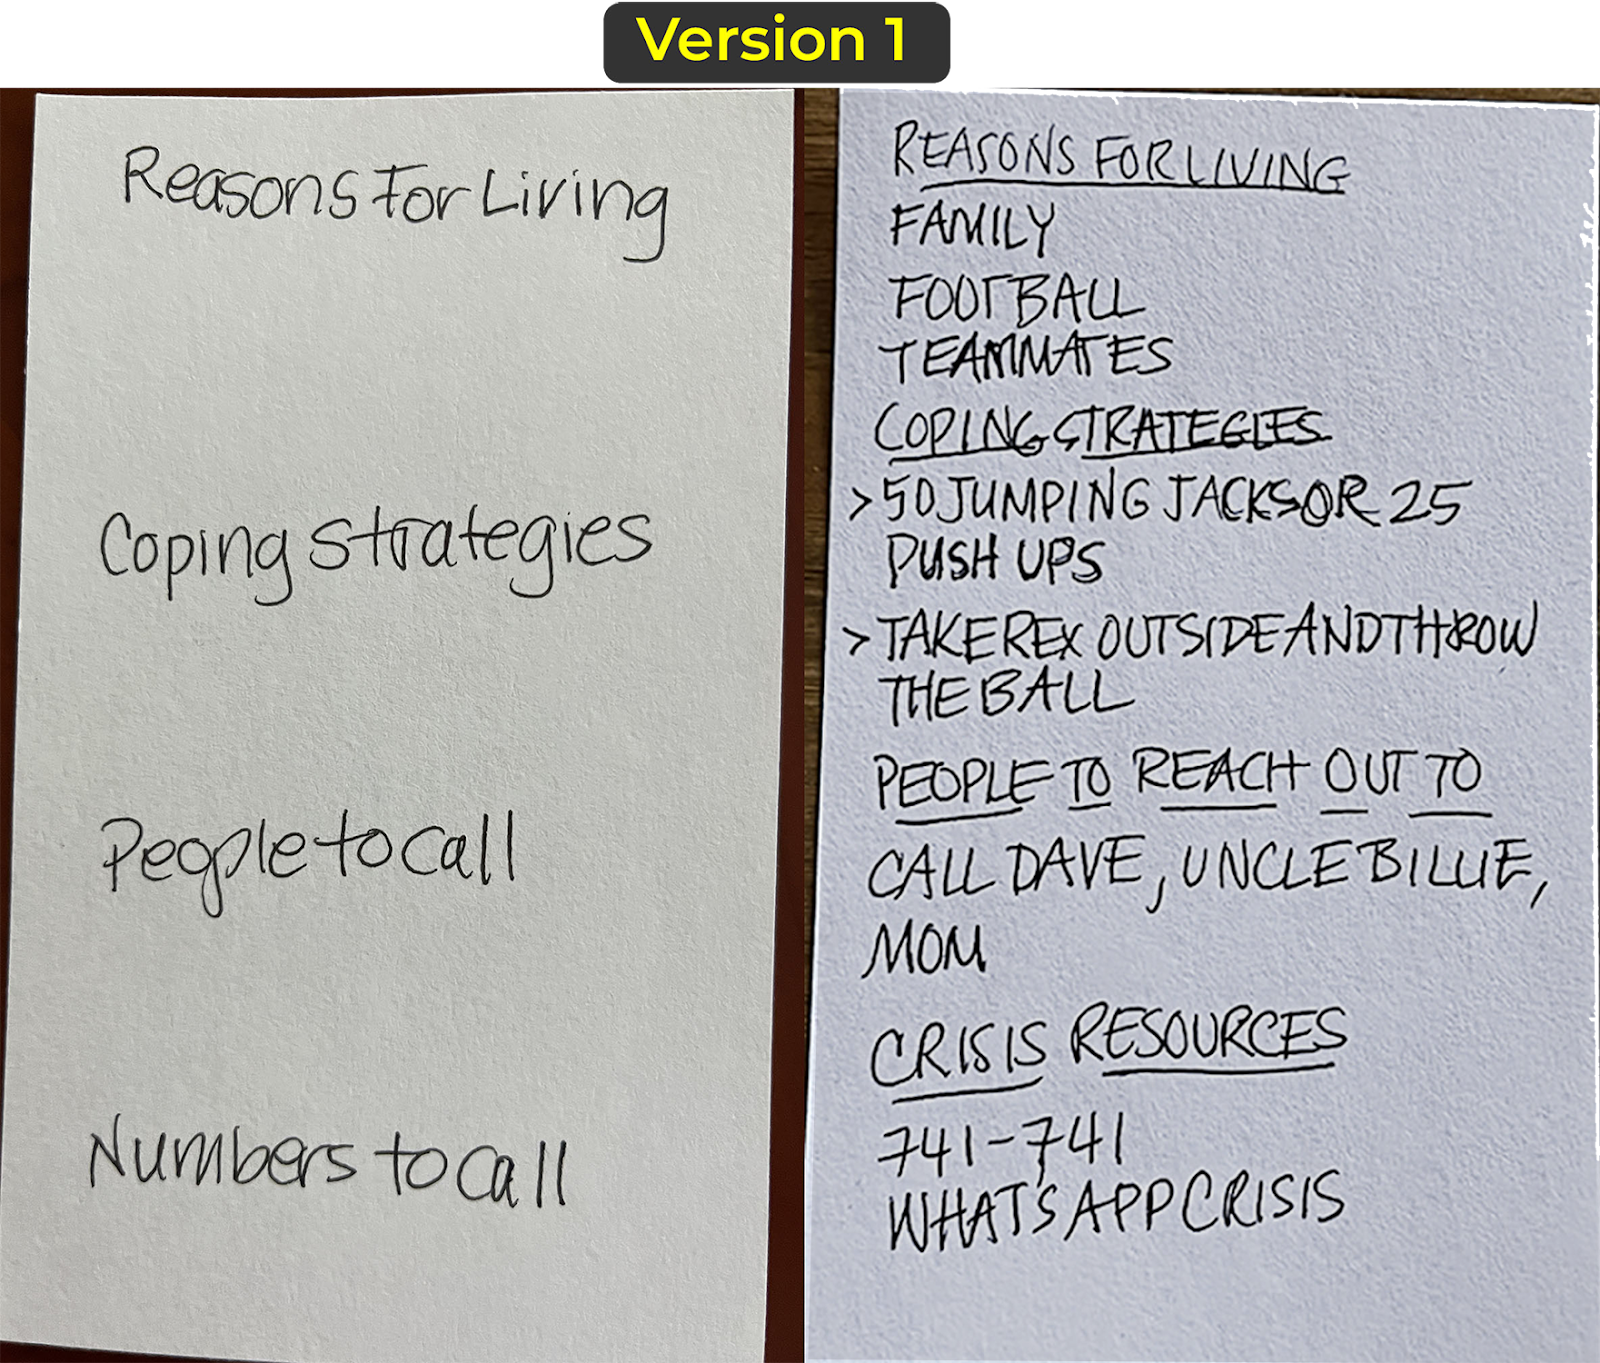 Version 1
Reasons For Living
Coping Strategies
People to call
Numbers to call
REASONS FOR LIVING
FAMILY
FOOTBALL
TEAMMATES
COPING STRATEGIES
> 50 JUMPING JACKS OR 25
PUSH UPS
> TAKE REX OUTSIDE AND THROW
THE BALL
PEOPLE TO REACH OUT TO
CALL DAVE, UNCLE BILLIE,
MOM
CRISIS RESOURCES
741-741
WHAT'S APP CRISIS